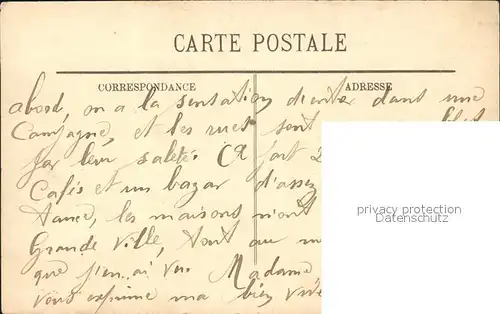 CARTE POSTALE
CORRESPONDANCE
ADRESSE
abord, on a la sensation d'entrer dans une
Campagne, et les rues sont
par leur saleté. Ca fait
Cafés et un bazar d'assez
tance, les maisons n'ont
Grande Ville, tout au
que j'en ai vu. Madame
vous exprime ma bien vive
privacy protection
Datenschutz